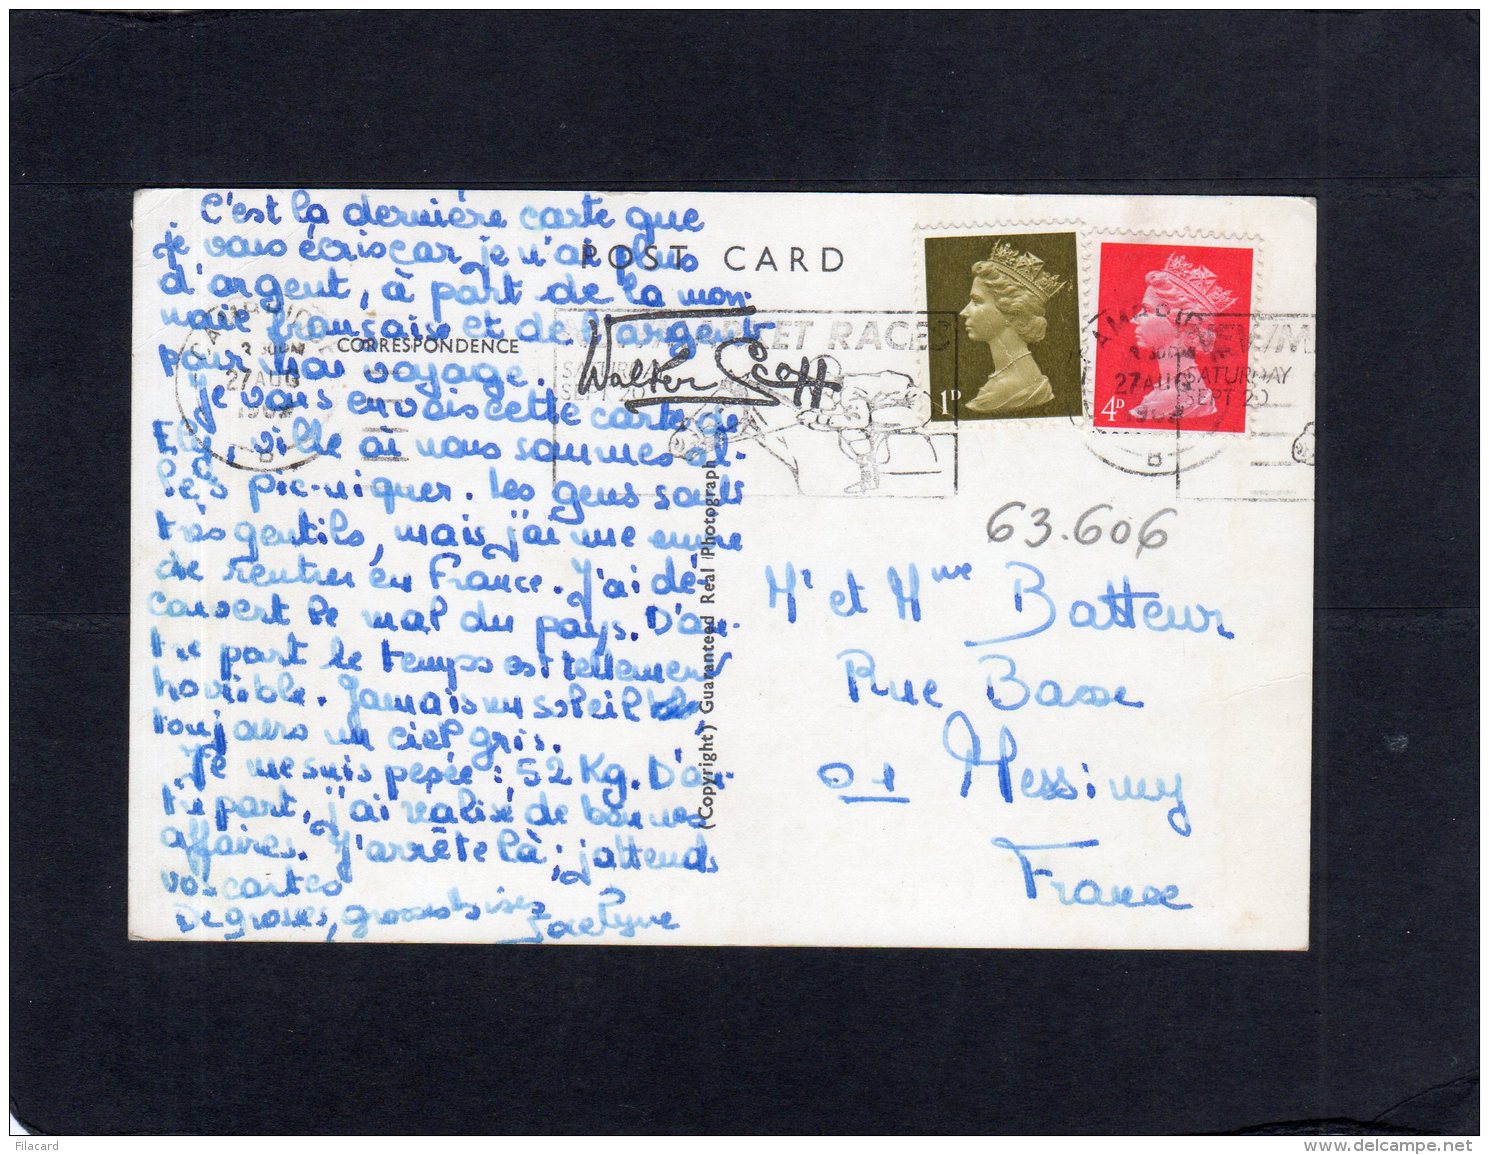 C'est la dernière carte que
je vous écris car je n'ai plus
d'argent, à part de la mon-
naie française et de l'argent
pour
voyage.
je vous envois cette carte de
Ely, ville où nous sommes al-
lés pic-niquer. Les gens sont
très gentils, mais j'ai une envie
de rentrer en France. J'ai dé-
couvert le mal du pays. D'au-
tre part le temps est tellement
horrible. Jamais un soleil
toujours un ciel gris.
Je me suis pesée : 52 Kg. D'au-
tre part, j'ai réalisé de bonnes
affaires. J'arrête là ; j'attends
vos cartes
De grosses, grosses bises
Jocelyne
POST CARD
CORRESPONDENCE
Walter Scott
(Copyright) Guaranteed Real Photograph
NEWMARKET RACES
SATURDAY
SEPT 20
CAMBRIDGE
27 AUG
B
1D
4D
CAMBRIDGE
27 AUG
B
NEWM
SATURDAY
SEPT 20
63.606
Mr et Mme Batteur
Rue Basse
01 Messimy
France
Filacard
www.delcampe.net